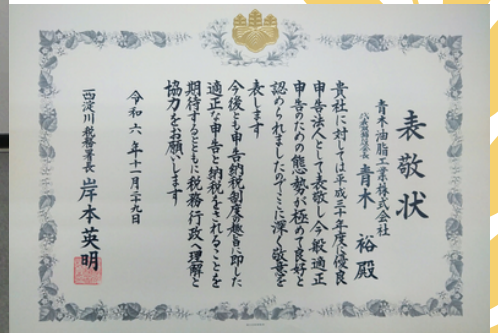 表敬状
青木油脂工業株式会社
代表取締役社長 青木 裕 殿
貴社に対しては平成三十年度に優良
申告法人として表敬し今般適正
申告のための態勢が極めて良好と
認められましたのでここに深く敬意を
表します
今後とも申告納税制度の趣旨に即した
適正な申告と納税をされることを
期待するとともに税務行政へ理解と
協力をお願いします
令和六年十一月二十九日
西淀川税務署長 岸本英明